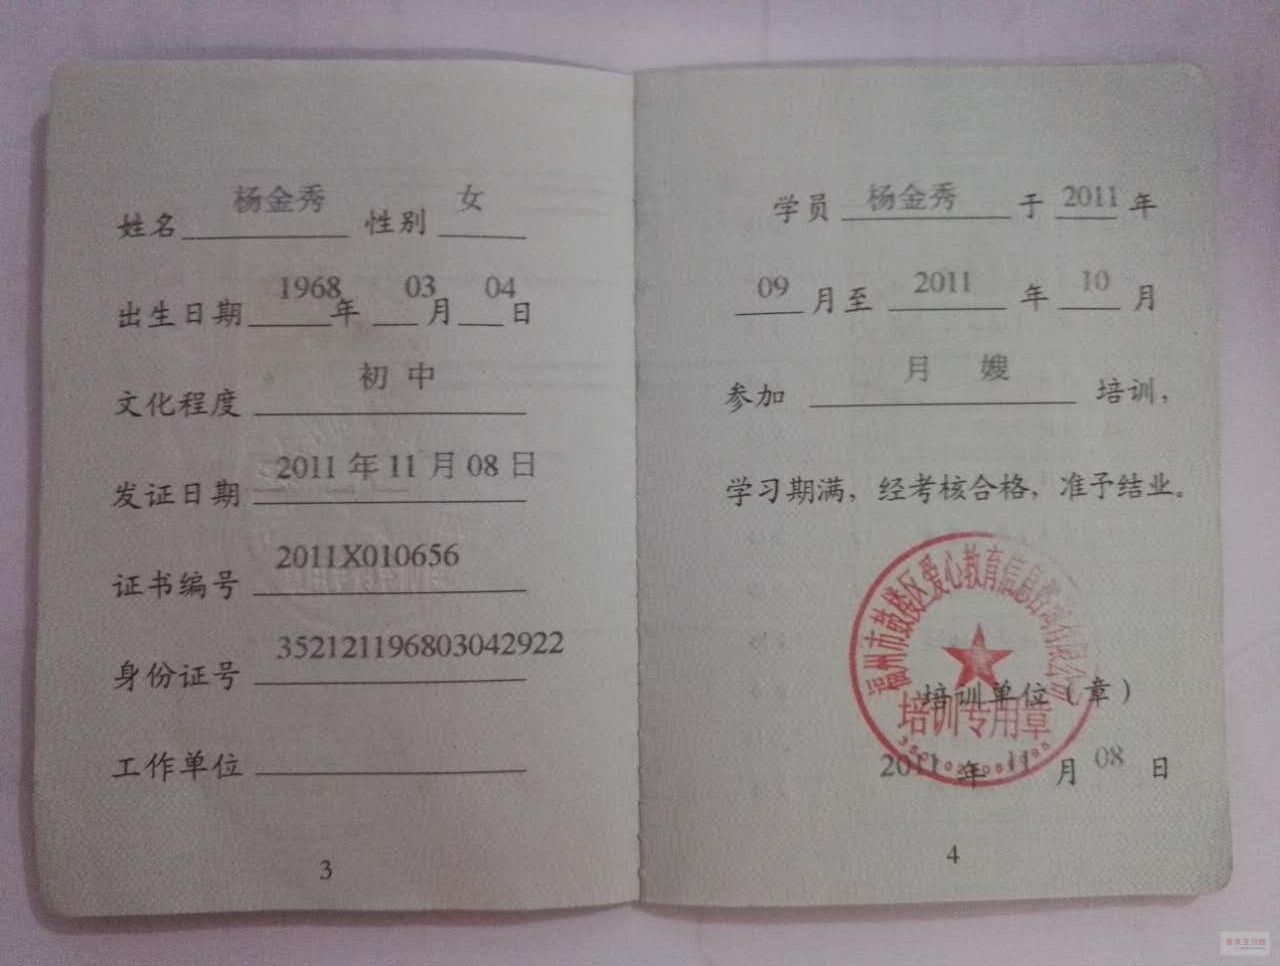 姓名 杨金秀 性别 女
出生日期 1968 年 03 月 04 日
文化程度 初中
发证日期 2011 年 11 月 08 日
证书编号 2011X010656
身份证号 352121196803042922
工作单位
3
学员 杨金秀 于 2011 年
09 月至 2011 年 10 月
参加 月 嫂 培训，
学习期满，经考核合格，准予结业。
福州市鼓楼区爱心教育信息咨询有限公司
培训单位（章）
培训专用章
2011 年 11 月 08 日
4